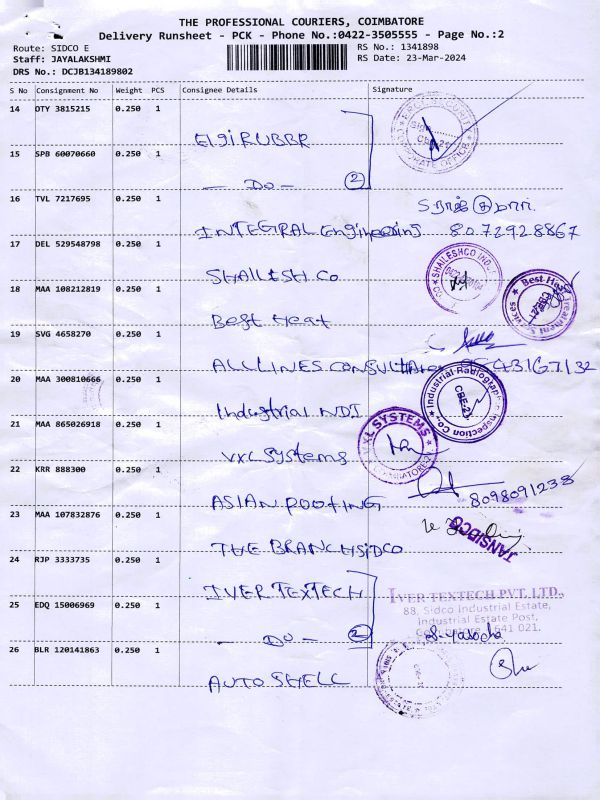 THE PROFESSIONAL COURIERS, COIMBATORE
Delivery Runsheet - PCK - Phone No.:0422-3505555 - Page No.:2
Route: SIDCO E
RS No.: 1341898
Staff: JAYALAKSHMI
RS Date: 23-Mar-2024
DRS No.: DCJB134189802
S No Consignment No Weight PCS Consignee Details Signature
14 OTY 3815215 0.250 1
Elgi RUBBR
15 SPB 60070660 0.250 1
— DO — 2
16 TVL 7217695 0.250 1
INTEGRAL Engineering 8072928867
17 DEL 529548798 0.250 1
SHAILESH.Co
SHAILESHCO
18 MAA 108212819 0.250 1
Best Heat
Best Heat Treatment Services
19 SVG 4658270 0.250 1
ALL LINES CONSULTA
20 MAA 300810666 0.250 1
Industrial NDI
Industrial Radiographic Inspection Co.,
CBE-21
21 MAA 865026918 0.250 1
VXL Systems
VXL SYSTEMS
22 KRR 888300 0.250 1
ASIAN ROOFING 8098091238
23 MAA 107832876 0.250 1
THE BRANCH SIDCO
TANSIDCO
24 RJP 3333735 0.250 1
IVER TEXTECH
IVER TEXTECH PVT. LTD.,
88, Sidco Industrial Estate,
Industrial Estate Post,
641 021.
25 EDQ 15006969 0.250 1
— DO — 2
26 BLR 120141863 0.250 1
AUTO SHELL